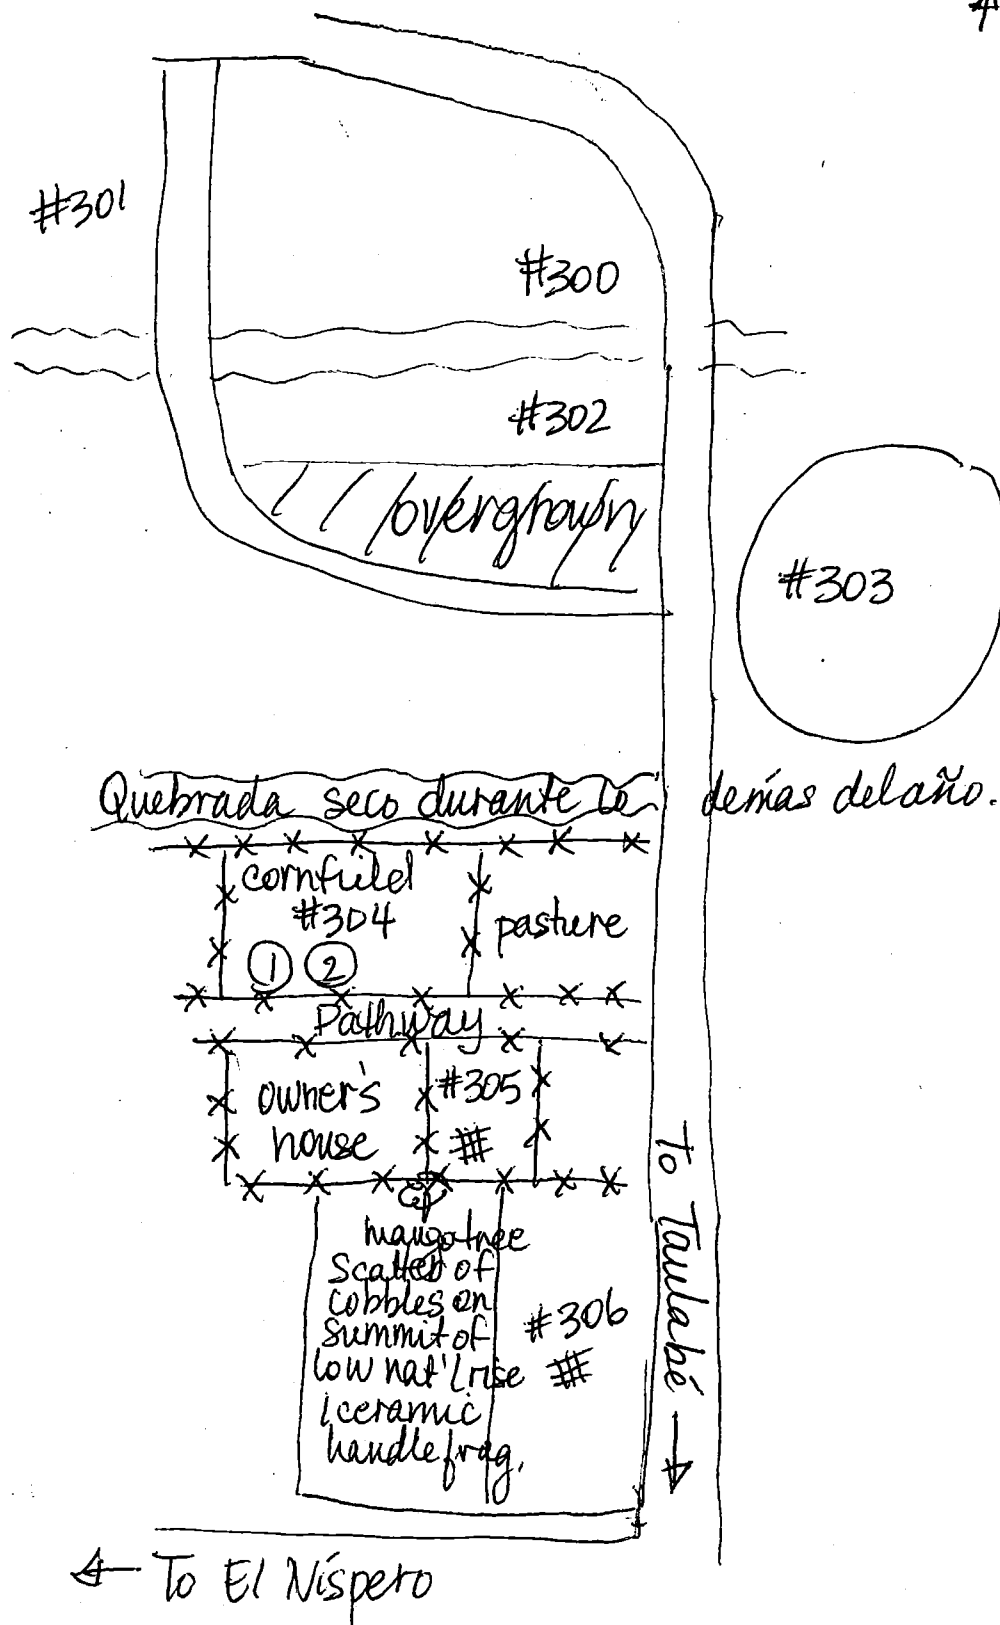 #301
#300
#302
overgrown
#303
Quebrada seco durante lo demás del año.
cornfield
#304
pasture
① ②
Pathway
owner's
house
#305
#
mango tree
Scatter of
cobbles on
summit of
low nat'l rise
1 ceramic
handle frag.
#306
#
To Taulabé →
← To El Níspero